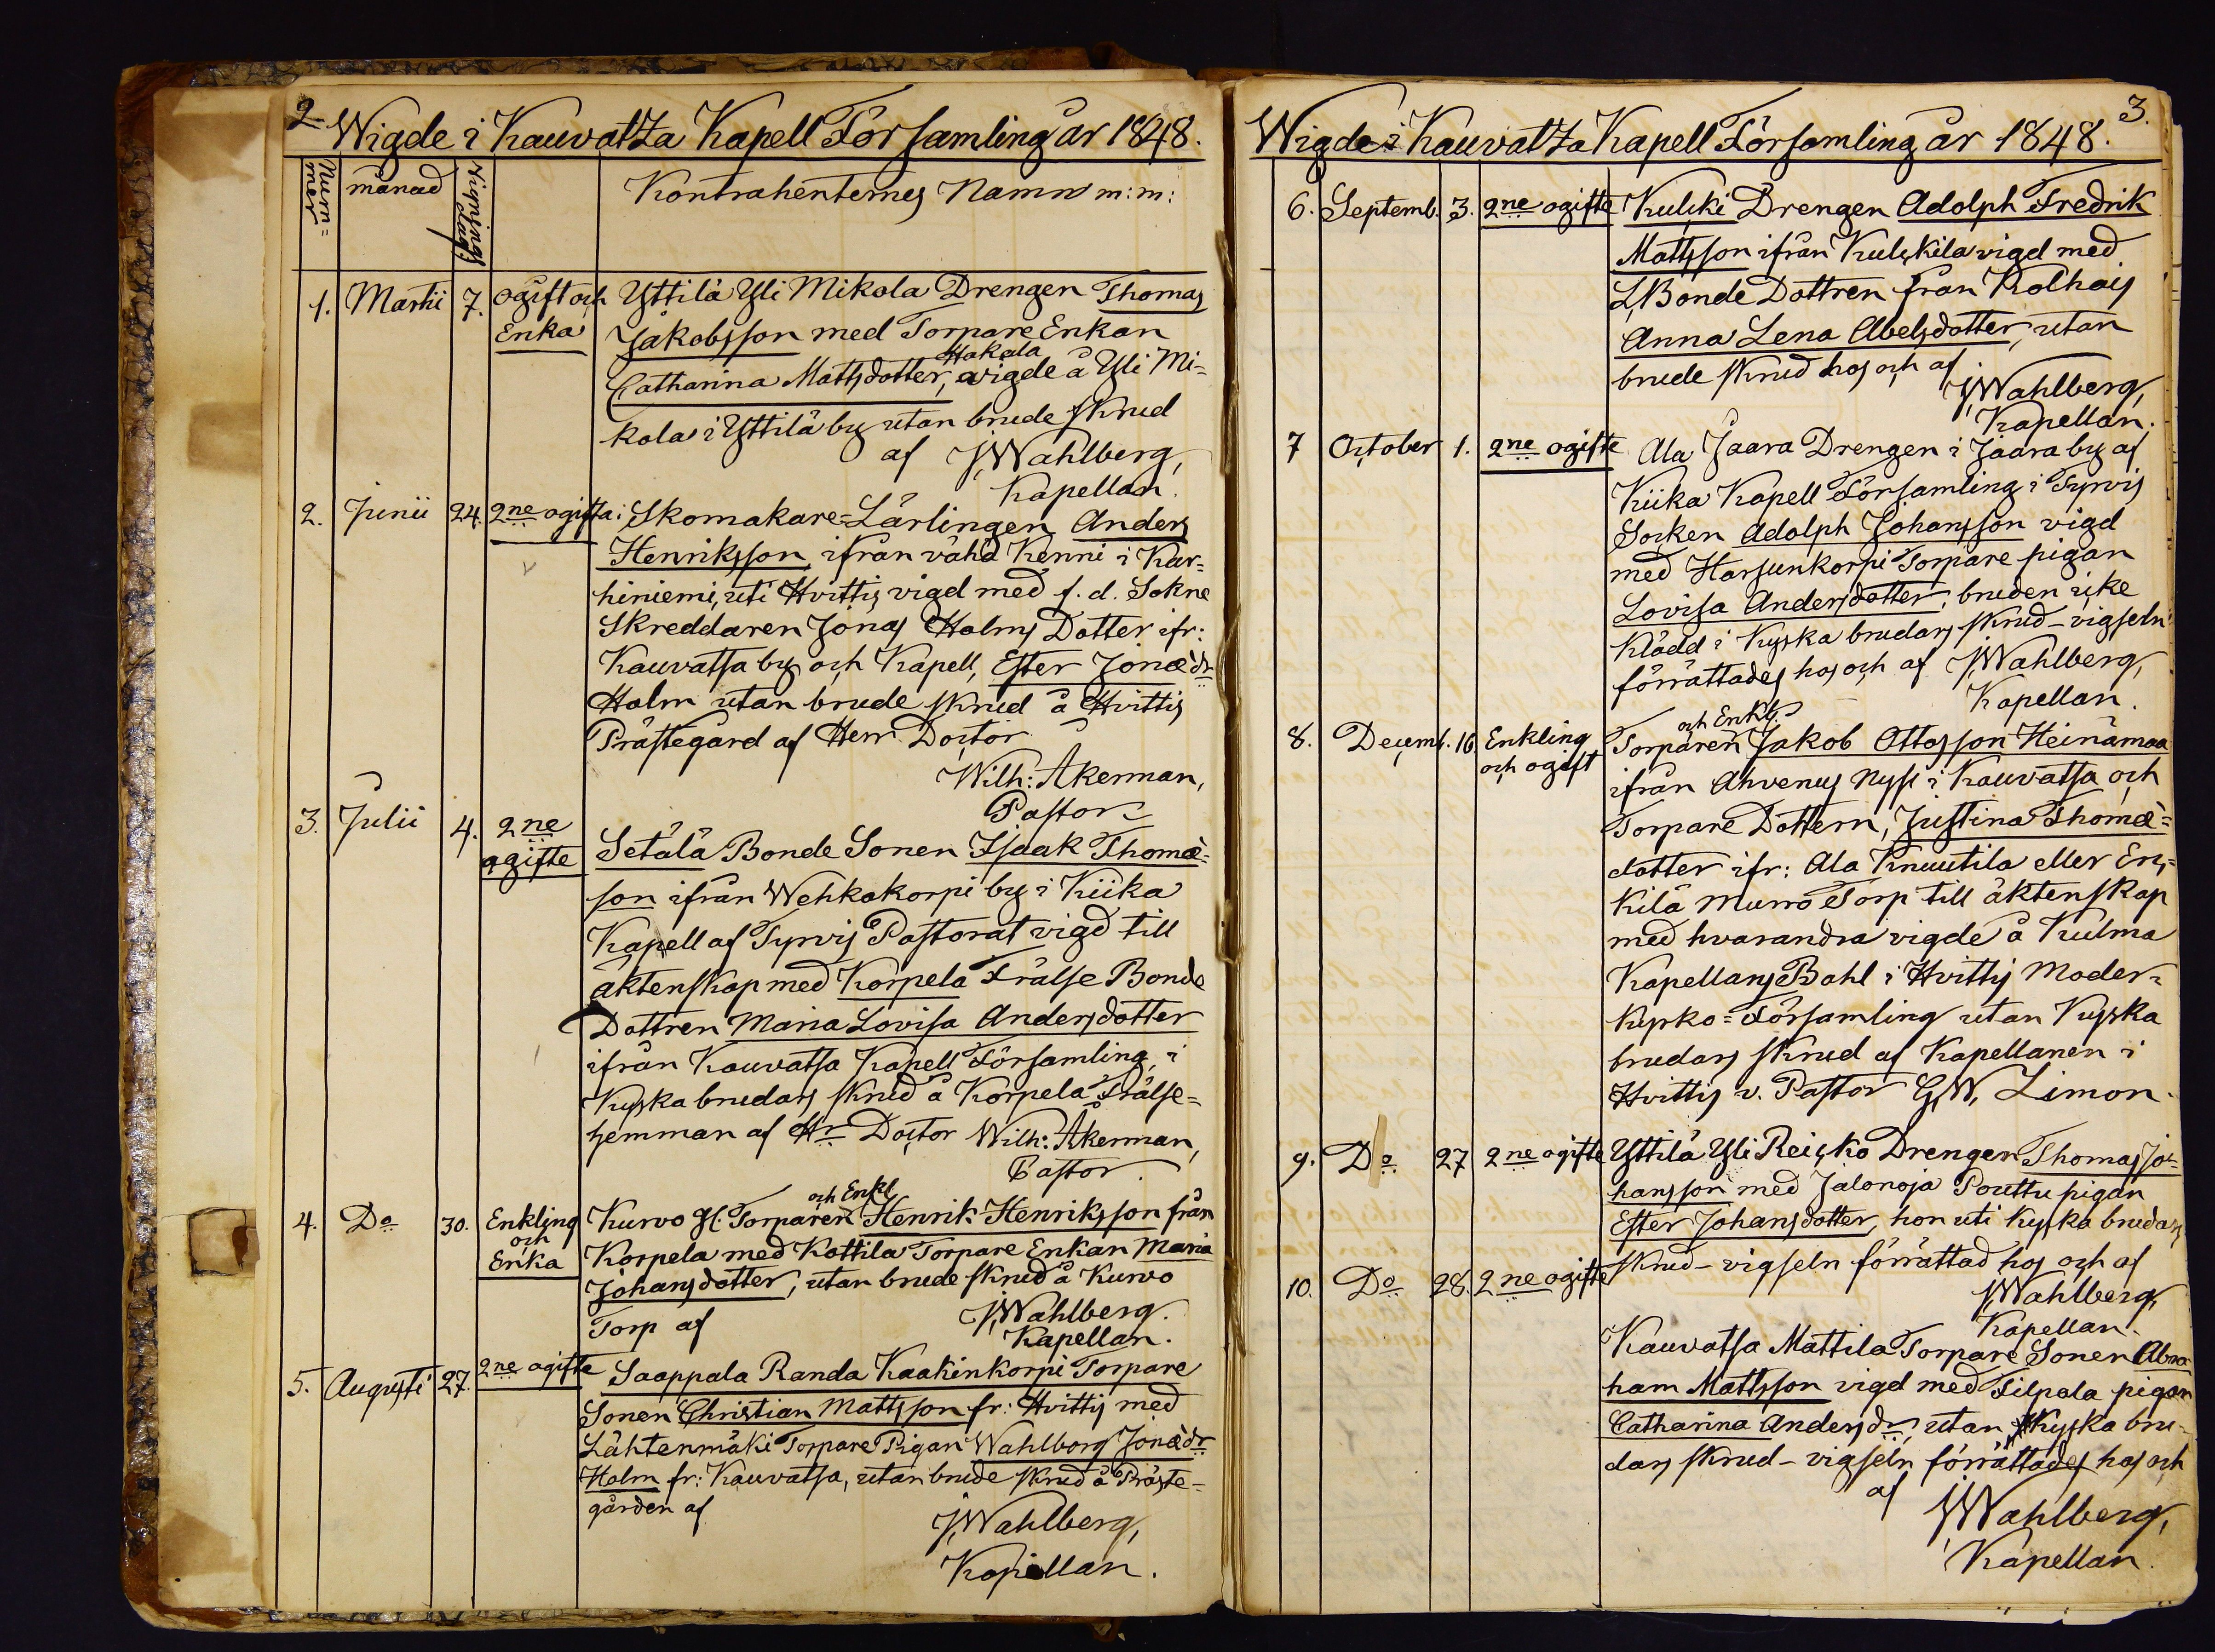 2
Wigde i Kauvatza Kapell Församling år 1848.
Num=
mer
månad
Vignings
dag
Kontrahenternes Namn m:m:
1. Martii 7. ogift och Yttilä Yli Mikola Drengen Thomas
Enka Jakobsson med Torpare Enkan
Hakala
Catharina Mattsdotter, vigde å Yli Mi=
kola i Yttilä by utan brude skrud
af J. Wahlberg,
Kapellan.
2. Junii 24. 2ne ogifta: Skomakare=Lärlingen Anders
Henriksson ifrån vähä Kenni i Kar=
hiniemi, uti Hvittis vigd med f. d. Sokne
Skreddaren Jonas Holms Dotter ifr:
Kauvatsa by och Kapell, Ester Jonædr
Holm utan brude skrud å Hvittis
Prästegård af Herr Doctor
Wilh: Åkerman,
Pastor
3. Julii 4. 2ne
ogifte Setälä Bonde Sonen Isaak Thomæ=
son ifrån Wehkakorpi by i Kiika
Kapell af Tyrvis Pastorat vigd till
äktenskap med Korpela Frälse Bonde
Dottren Maria Lovisa Andersdotter
ifrån Kauvatsa Kapell Församling, i
Kyska brudars skrud å Korpela Frälse=
hemman af Hr Doctor Wilh: Åkerman,
Pastor.
och Enkl
4. Do 30. Enkling Kurvo gl. Torparen Henrik Henriksson från
och
Enka Korpela med Kottila Torpare Enkan Maria
Johansdotter, utan brude skrud å Kurvo
Torp af J. Wahlberg.
Kapellan.
5. Augusti 27. 2ne ogifte Saappala Randa Kaakinkorpi Torpare
Sonen Christian Mattsson fr: Hvittis med
Lähtenmäki Torpare Pigan Wahlborg Jonædr
Holm fr: Kauvatsa, utan brude skrud å Präste=
gården af
J. Wahlberg,
Kapellan.
3.
Wigde i Kauvatza Kapell Församling år 1848.
6. Septemb. 3. 2ne ogifte Kulcki Drengen Adolph Fredrik
Mattsson ifrån Kulckila vigd med
L. Bonde Dottren från Kolhais
Anna Lena Abelsdotter, utan
brude skrud hos och af
J. Wahlberg,
Kapellan.
7 October 1. 2ne ogifte Ala Jaara Drengen i Jaara by af
Kiika Kapell Församling i Tyrvis
Socken Adolph Johansson vigd
med Harsunkorpi Torpare pigan
Lovisa Andersdotter, bruden icke
klädd i Kyska brudars skrud – vigseln
förrättades hos och af J. Wahlberg,
Kapellan.
och Enkl.
8. Decemb. 16. Enkling Torparen Jakob Ottosson Heinämaa
och ogift
ifrån Ahvenus Nyss i Kauvatsa och
Torpare Dottern, Justina Thomæ=
dotter ifr: Ala Knuutila eller Erc=
kilä Murro Torp till äktenskap
med hvarandra vigde å Kulma
Kapellans Bohl i Hvittis Moder=
kyrko=Församling utan Kyska
brudars skrud af Kapellanen i
Hvittis v. Pastor G. W. Limon.
9. Do 27 2ne ogifte Yttilä Yli Reicko Drengen Thomas Jo=
hansson med Jalonoja Pouttu pigan
Ester Johansdotter, hon uti kyska brudars
skrud – vigseln förrättad hos och af
J. Wahlberg,
Kapellan.
10. Do 28. 2ne ogifte
Kauvatsa Mattila Torpare Sonen Abra=
ham Mattsson vigd med Filpala pigan
Catharina Andersdr, utan Kyska bru=
dars skrud – vigseln förrättades hos och
af
J. Wahlberg,
Kapellan.